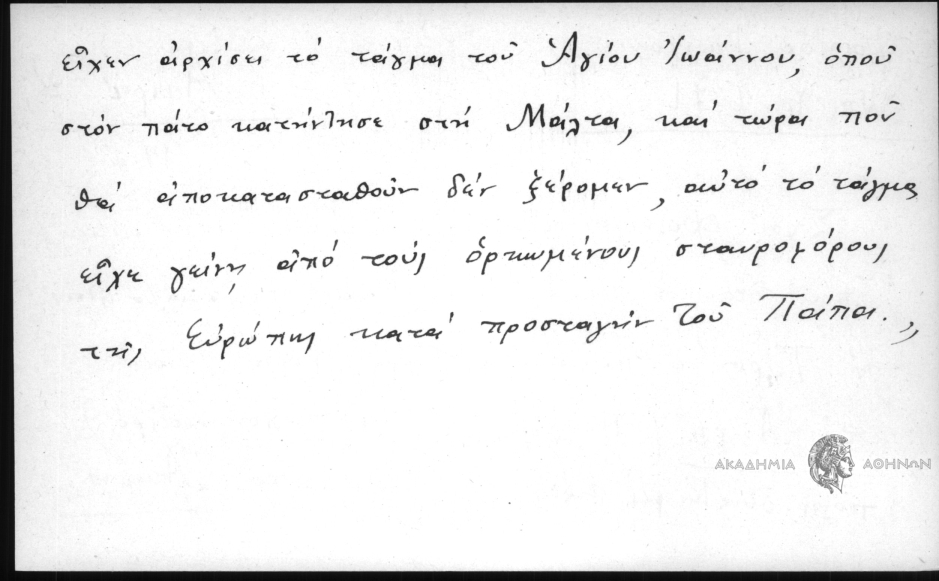 εἶχεν ἀρχίσει τό τάγμα τοῦ Ἁγίου Ἰωάννου, ὁποῦ
στόν πάτο κατήντησε στή Μάλτα, καί τώρα ποῦ
θά ἀποκατασταθοῦν δέν ξέρομεν, αὐτό τό τάγμα
εἶχε γείνῃ ἀπό τούς ὁρκωμένους σταυροφόρους
τῆς Εὐρώπης κατά προσταγήν τοῦ Πάπα.,,
ΑΚΑΔΗΜΙΑ ΑΘΗΝΩΝ